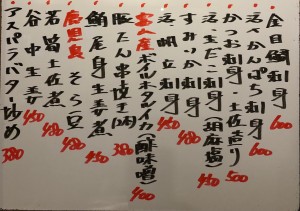 金目鯛刺身 600
活〆かんぱち刺身 600
かつお刺身・土佐造り 500
活・生だこ刺身(胡麻塩) 450
すみいか刺身 480
活帆立刺身 450
富山産ボイルホタルイカ(酢味噌) 400
豚たん串焼き(2本) 380
鯛尾身生姜煮 450
鹿児島そら豆 480
若筍土佐煮 480
谷中生姜 450
アスパラバター炒め 380